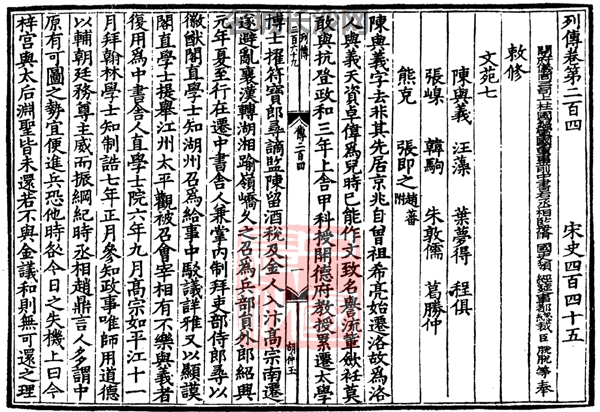 列傳卷第二百四 宋史四百四十五
開府儀同三司上柱國錄軍國重事前中書右丞相監脩國史領經筵事都總裁臣脫脫等奉
敕修
文苑七
陳與義 汪藻 葉夢得 程俱
張嵲 韓駒 朱敦儒 葛勝仲
熊克 張即之 趙蕃附
陳與義字去非其先居京兆自曾祖希亮始遷洛故為洛
人與義天資卓偉為兒時已能作文致名譽流輩斂衽莫
敢與抗登政和三年上舍甲科授開德府教授累遷太學
傳二百四
一
博士擢符寶郎尋謫監陳留酒稅及金人入汴高宗南遷
遂避亂襄漢轉湖湘踰嶺嶠久之召為兵部員外郎紹興
元年夏至行在遷中書舍人兼掌內制拜吏部侍郎尋以
徽猷閣直學士知湖州召為給事中駁議詳雅又以顯謨
閣直學士提舉江州太平觀被召會宰相有不樂與義者
復用為中書舍人直學士院六年九月高宗如平江十一
月拜翰林學士知制誥七年正月參知政事唯師用道德
以輔朝廷務尊主威而振綱紀時丞相趙鼎言人多謂中
原有可圖之勢宜便進兵恐他時咎今日之失機上曰今
梓宮與太后淵聖皆未還若不與金議和則無可還之理